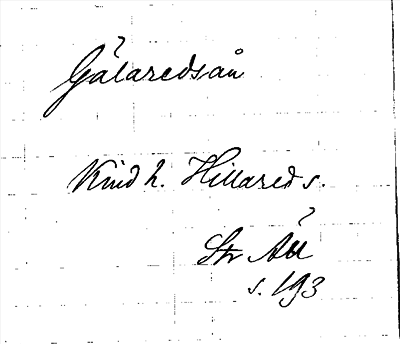 Gålaredsån
Kind h. Hillared s.
Str
s. 193